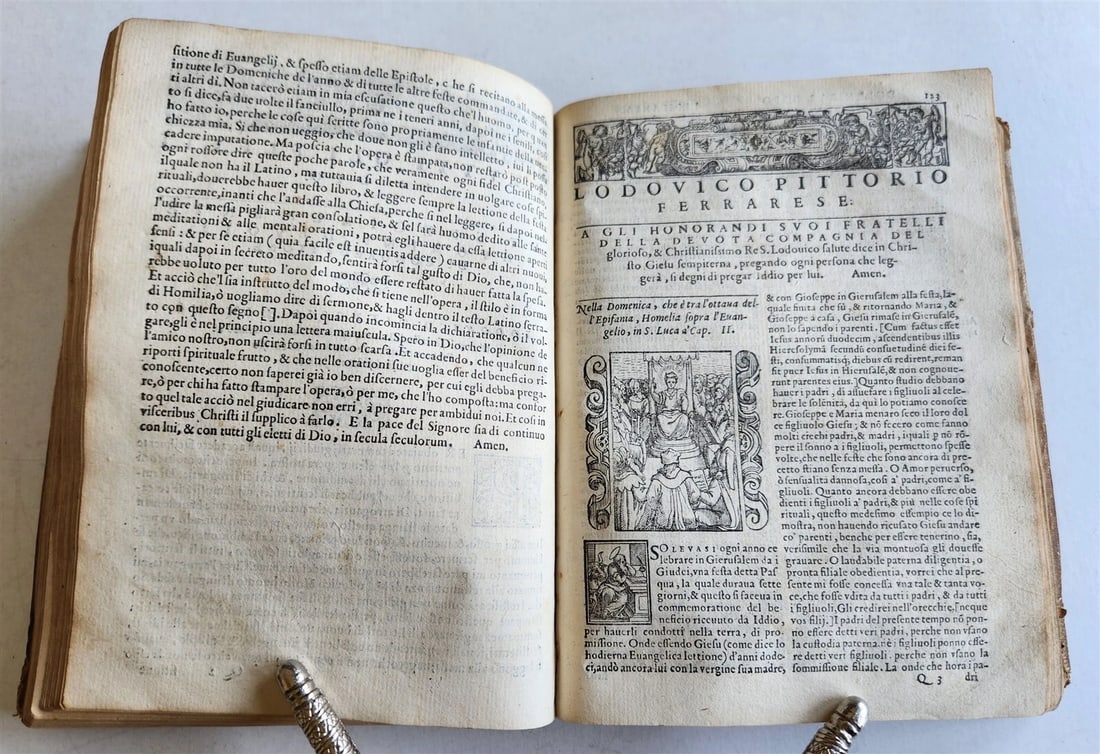 sitione di Euangelij, & spesso etiam delle Epistole, c he si recitano alla messa
in tutte le Domeniche de l'anno & di tutte le altre feste commandate, & in cer
ti altri di. Non tacerò etiam in mia escusatione questo che l'huomo, per quan
to si dice, fa due volte il fanciullo, prima ne i teneri anni, dapoi ne i senili,
ho fatto io, perche le cose qui scritte sono propriamente le infantie della
chiezza mia. Si che non ueggio, che doue non gli è sano intelletto, iui
cadere imputatione. Ma poscia che l'opera è stampata, non restarò
ogni rossore dire queste poche parole, che veramente ogni fidel Christiano,
ilquale non ha il Latino, ma tuttauia si diletta intendere in uolgare cose spi
rituali, douerebbe hauer questo libro, & leggere sempre la lettione della festa
occorrente, inanti che l'andasse alla Chiesa, perche si nel leggere, si dapoi nel
l'udire la messa pigliarà gran consolatione, & sel sarà huomo dedito alle sante
meditationi & alle mentali orationi, potrà egli hauere da essa lettione aperti
sensi: & per se etiam (quia facile est inuentis addere) cauarne di altri nuoui,
iquali dapoi in secreto meditando, sentirà forsi tal gusto di Dio, che, non ha-
rebbe uoluto per tutto l'oro del mondo essere restato di hauer fatta la spesa.
Et acciò che l'sia instrutto del modo, che si tiene nell'opera, il stilo è in forma
di Homilia, ò uogliamo dire di sermone, & hagli dentro il testo Latino serra-
to con questo segno [ ]. Dapoi quando incomincia la dichiaratione, ò il vol-
gare, gli è nel principio una lettera maiuscula. Spero in Dio, che l'opinione de
l'amico nostro, non uscirà forsi in tutto scarsa. Et accadendo, che qualcun ne
riporti spirituale frutto, & che nelle orationi sue uoglia esser del beneficio ri-
conoscente, certo non saperei già io ben discernere, per cui egli debba prega-
re, ò per chi ha fatto stampare l'opera, ò per me, che l'ho composta: ma confor
to quel tale acciò nel giudicare non erri, à pregare per ambidui noi. Et cosi in
visceribus Christi il supplico à farlo. E la pace del Signore sia di continuo
con lui, & con tutti gli eletti di Dio, in secula seculorum. Amen.
123
LODOVICO PITTORIO
FERRARESE:
A GLI HONORANDI SVOI FRATELLI
DELLA DEVOTA COMPAGNIA DEL
glorioso, & Christianissimo Re S. Lodouico salute dice in Chri-
sto Giesu sempiterna, pregando ogni persona che leg-
gerà, si degni di pregar Iddio per lui. Amen.
Nella Domenica, che è tra l'ottaua del-
l'Epifania, Homelia sopra l'Euan-
gelio, in S. Luca a' Cap. II.
SOLEVASI ogni anno ce
lebrare in Gierusalem da i
Giudei, vna festa detta Pas
qua, la quale duraua sette
giorni, & questo si faceua in
commemoratione del be-
neficio riceuuto da Iddio,
per hauerli condotti nella terra, di pro-
missione. Onde essendo Giesu (come dice lo
hodierna Euangelica lettione) d'anni dode-
ci, andò ancora lui con la vergine sua madre,
& con Gioseppe in Gierusalem alla festa, la-
quale finita che fù, & ritornando Maria, &
Gioseppe à casa, Giesu rimase in Gierusalé,
non lo sapendo i parenti. [Cum factus esset
Iesus annorũ duodecim, ascendentibus illis
Hierosolymã secundũ consuetudinē diei fe-
sti, consummatisq; diebus cũ redirent, reman
sit puer Iesus in Hierusalē, & non cognoue-
runt parentes eius.] Quanto studio debbano
hauer i padri, di assuefare i figliuoli al ce-
lebrare le solénità, da qui lo potiamo conosce
re. Gioseppe e Maria menaro seco il loro dol
ce figliuolo Giesu; & nõ fecero come fanno
molti ciechi padri, & madri, iquali p nõ rõ-
pere il sonno a i figliuoli, permettono spesse
volte, che nelle feste che sono ancora di pre-
cetto stiano senza messa. O Amor peruerso,
ò sensualità dannosa, cosi a' padri, come a' fi-
gliuoli. Quanto ancora debbano essere obe
dienti i figliuoli a' padri, & più nelle cose spi
rituali, questo medesimo essempio ce lo di-
mostra, non hauendo ricusato Giesu andare
co' parenti, benche per essere tenerino, sia,
verisimile che la via montuosa gli douesse
grauare. O laudabile paterna diligentia, o
pronta filiale obedientia, vorrei che al pre-
sente mi fosse concessa vna tale & tanta vo-
ce, che fosse vdita da tutti i padri, & da tutti
i figliuoli, Gli credirei nell'orecchie, [neque
vos filij.] I padri del presente tempo nõ pon-
no essere detti veri padri, perche non vsano
la custodia paterna. nè i figliuoli ponno esse
re detti veri figliuoli. perche non vsano la
sommissione filiale. La onde che hora i pa-
Q 3 dri